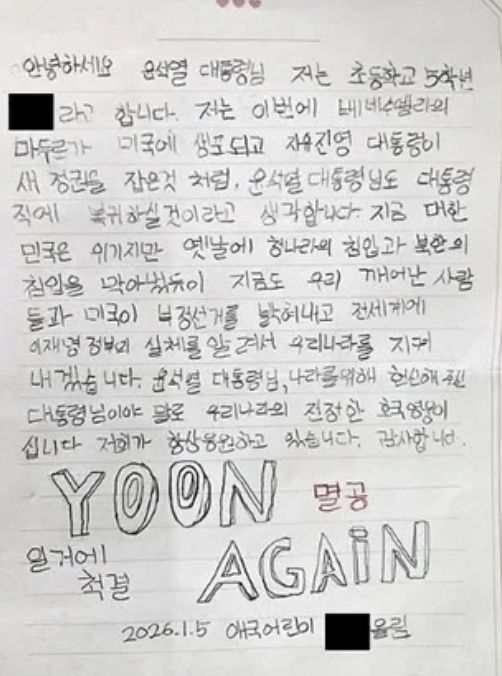 안녕하세요 윤석열 대통령님 저는 초등학교 5학년
라고 합니다. 저는 이번에 베네수엘라의
마두로가 미국에 생포되고 자유진영 대통령이
새 정권을 잡은것 처럼, 윤석열대통령님도 대통령
직에 복귀하실것이라고 생각합니다. 지금 대한
민국은 위기지만 옛날에 청나라의 침입과 북한의
침입을 막아냈듯이 지금도 우리 깨어난 사람
들과 미국이 부정선거를 밝혀내고 전세계에
이재명 정부의 실체를 알려서 우리나라를 지켜
내겠습니다. 윤석열 대통령님, 나라를위해 헌신해 주신
대통령님이야 말로 우리나라의 진정한 호국영웅이
십니다 저희가 항상응원하고 있습니다. 감사합니다.
YOON 멸공
일거에 AGAiN
척결
2026.1.5 애국어린이 올림